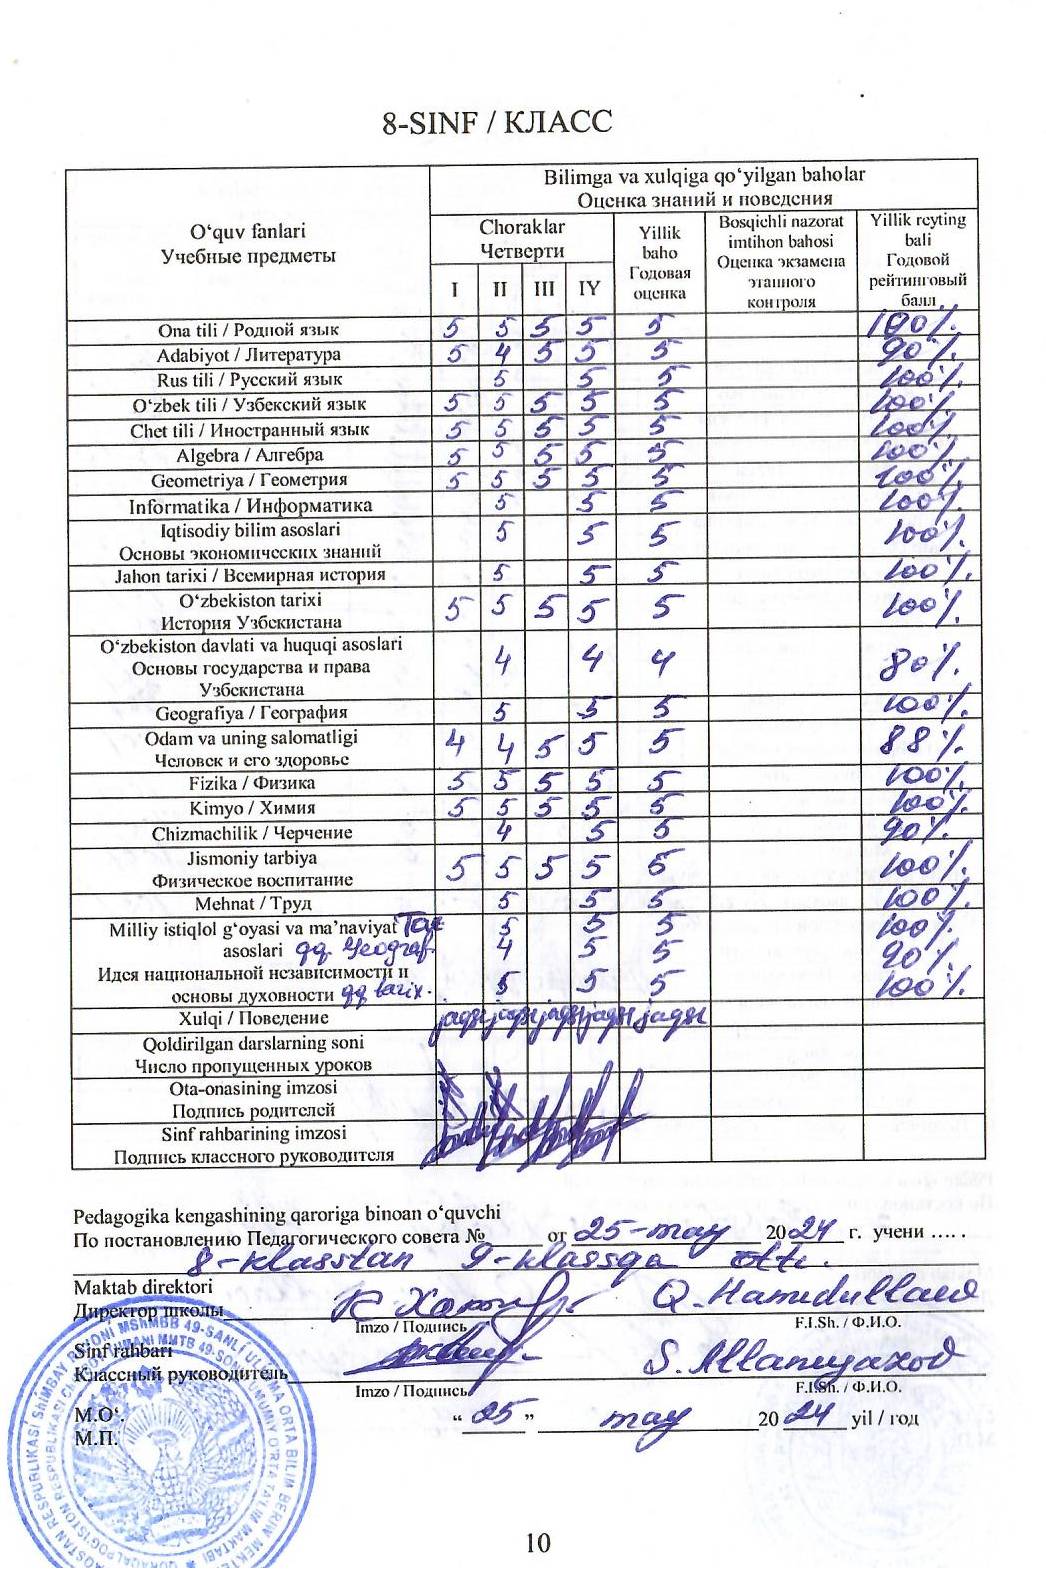 8-SINF / КЛАСС
O‘quv fanlari
Учебные предметы
Bilimga va xulqiga qo‘yilgan baholar
Оценка знаний и поведения
Choraklar
Четверти
I II III IY
Yillik
baho
Годовая
оценка
Bosqichli nazorat
imtihon bahosi
Оценка экзамена
этапного
контроля
Yillik reyting
bali
Годовой
рейтинговый
балл
Ona tili / Родной язык 5 5 5 5 5 100%
Adabiyot / Литература 5 4 5 5 5 90%
Rus tili / Русский язык 5 5 5 100%
O‘zbek tili / Узбекский язык 5 5 5 5 5 100%
Chet tili / Иностранный язык 5 5 5 5 5 100%
Algebra / Алгебра 5 5 5 5 5 100%
Geometriya / Геометрия 5 5 5 5 5 100%
Informatika / Информатика 5 5 5 100%
Iqtisodiy bilim asoslari
Основы экономических знаний 5 5 5 100%
Jahon tarixi / Всемирная история 5 5 5 100%
O‘zbekiston tarixi
История Узбекистана 5 5 5 5 5 100%
O‘zbekiston davlati va huquqi asoslari
Основы государства и права 4 4 4 80%
Узбекистана
Geografiya / География 5 5 5 100%
Odam va uning salomatligi
Человек и его здоровье 4 4 5 5 5 88%
Fizika / Физика 5 5 5 5 5 100%
Kimyo / Химия 5 5 5 5 5 100%
Chizmachilik / Черчение 4 5 5 90%
Jismoniy tarbiya
Физическое воспитание 5 5 5 5 5 100%
Mehnat / Труд 5 5 5 100%
Milliy istiqlol g‘oyasi va ma’naviyat 5 5 5 100%
asoslari qq. Geograf. 4 5 5 90%
Идея национальной независимости и
основы духовности qq tarix. 5 5 5 100%
Xulqi / Поведение jaqsı jaqsı jaqsı jaqsı jaqsı
Qoldirilgan darslarning soni
Число пропущенных уроков
Ota-onasining imzosi
Подпись родителей
Sinf rahbarining imzosi
Подпись классного руководителя
Pedagogika kengashining qaroriga binoan o‘quvchi
По постановлению Педагогического совета № от 25-may 2024 г. учени .....
8-klasstan 9-klassqa ótti.
Maktab direktori
Директор школы Q. Hamidullaev
Imzo / Подпись F.I.Sh. / Ф.И.О.
Sinf rahbari
Классный руководитель
Imzo / Подпись F.I.Sh. / Ф.И.О.
M.O‘. “ 25 ” may 2024 yil / год
М.П.
10